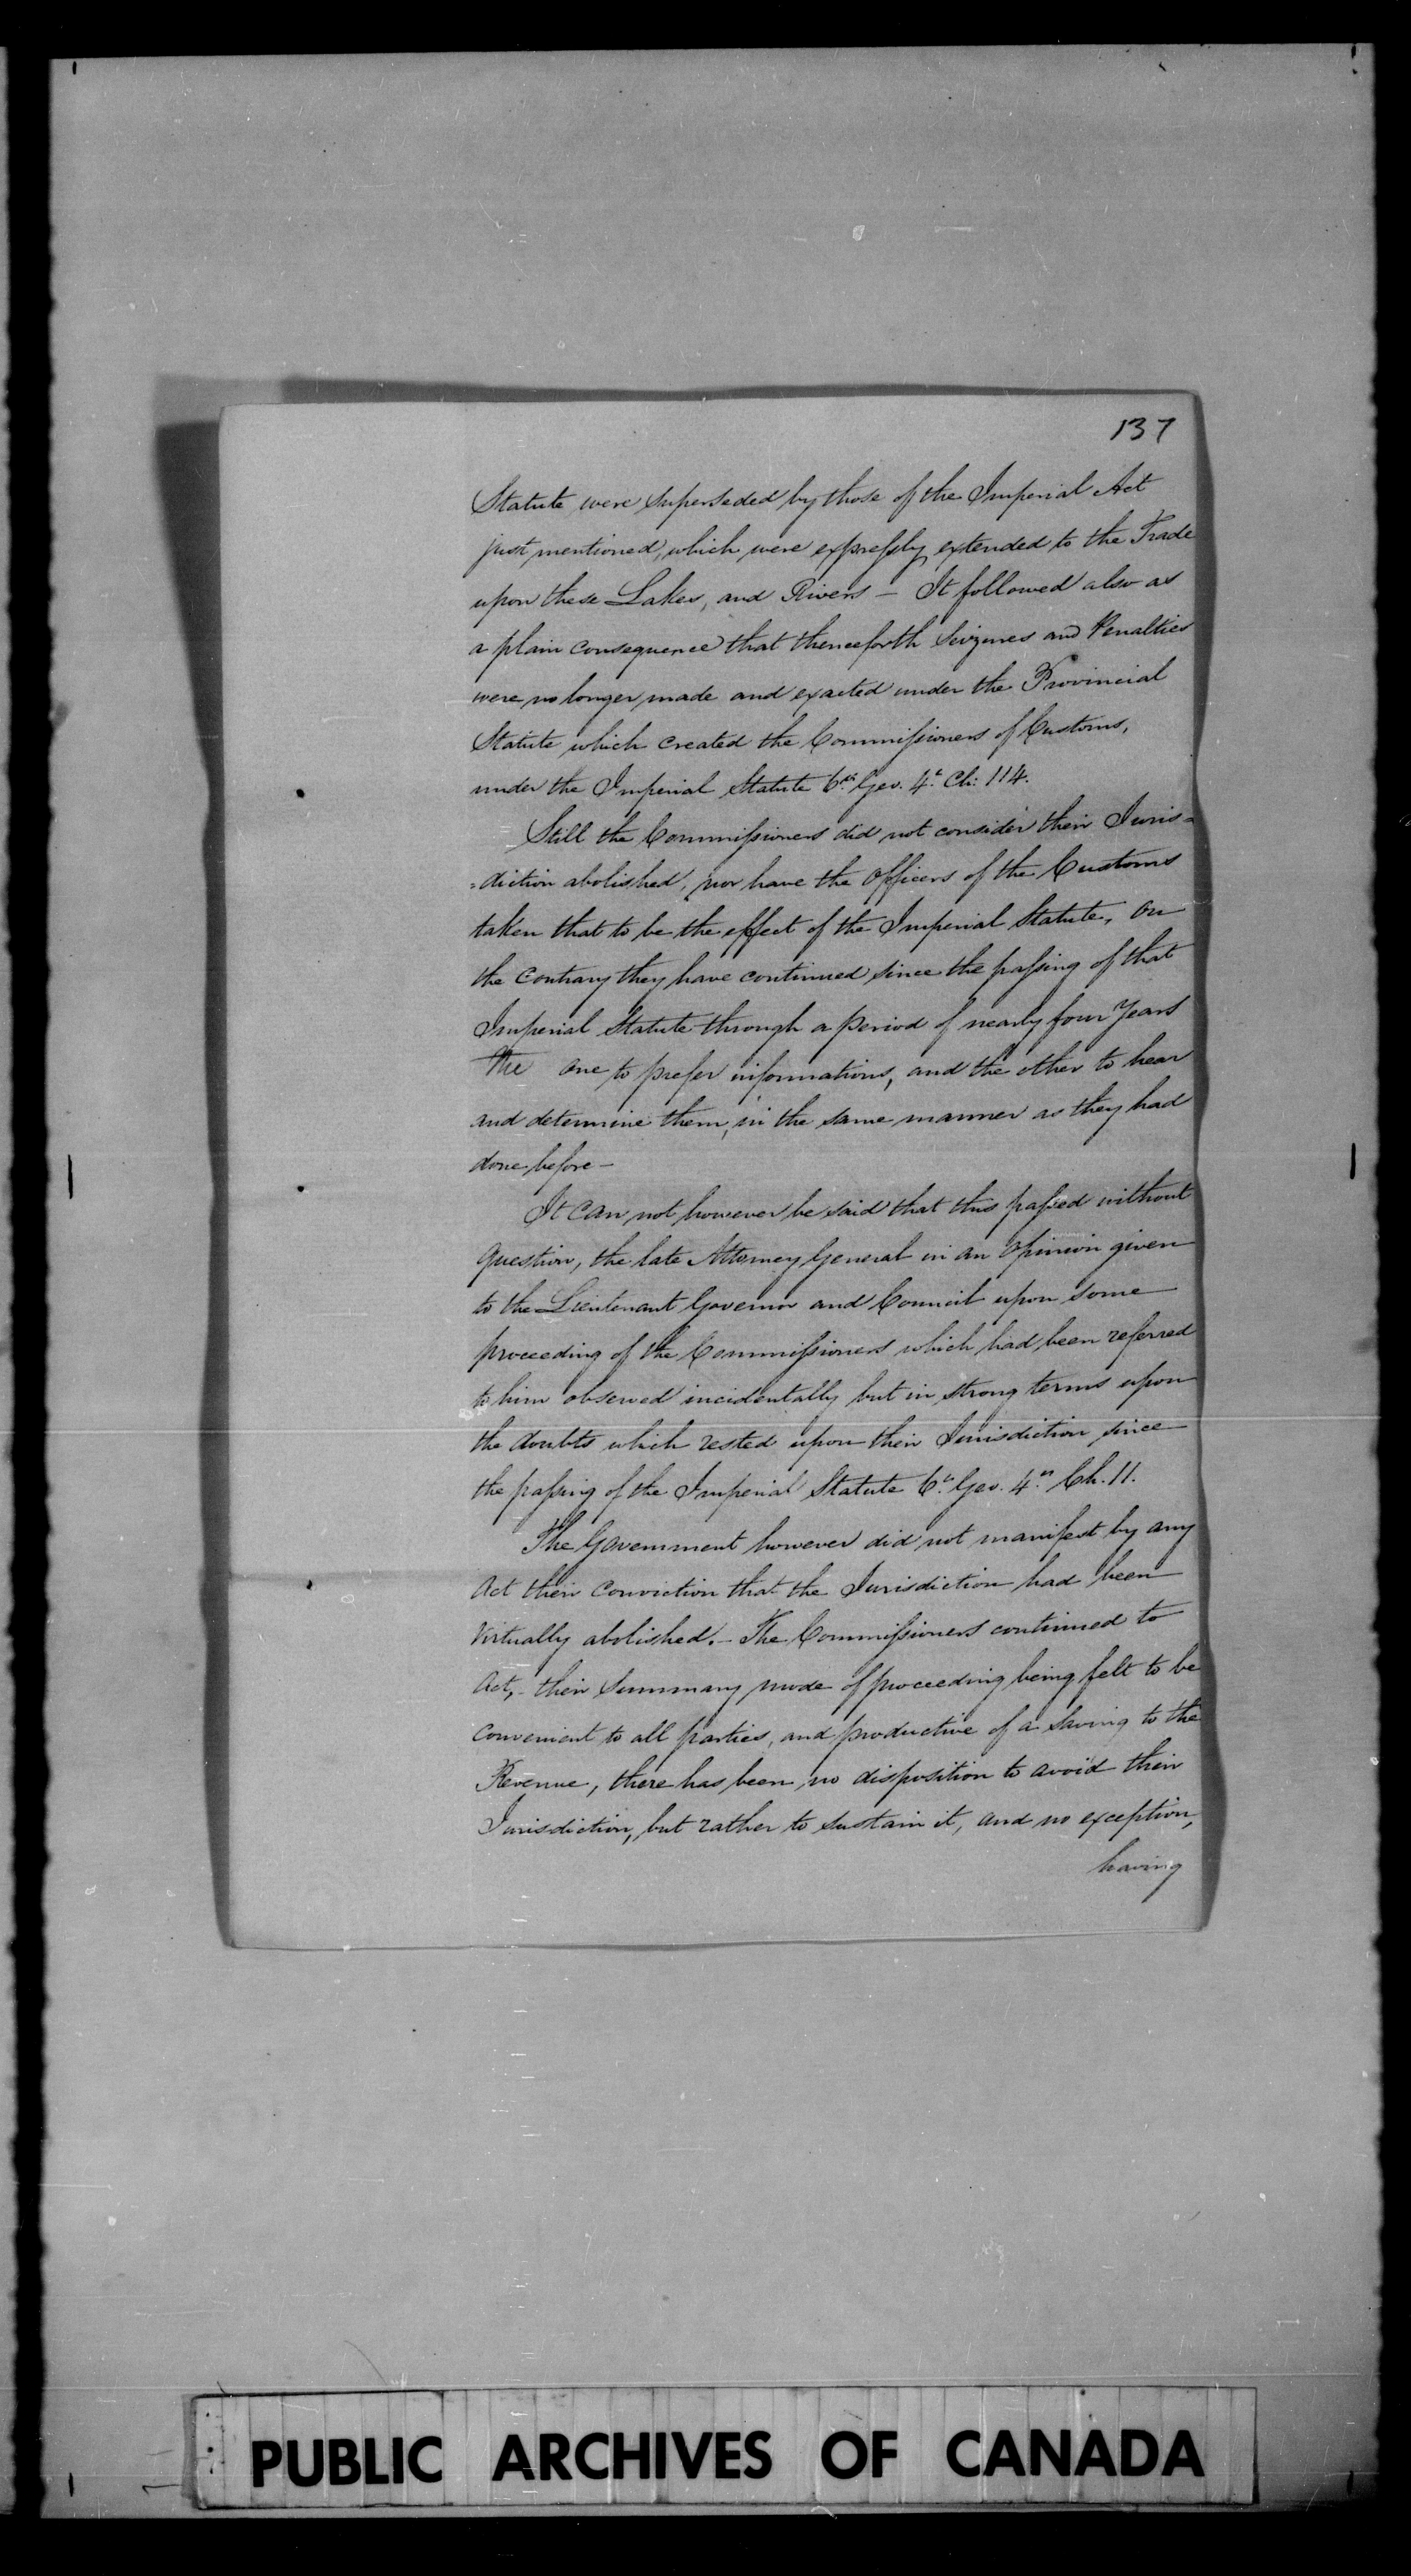 137
Statute were superseded by those of the Imperial Act
just mentioned, which were expressly extended to the Trade
upon these Lakes, and Rivers – It followed also as
a plain consequence that thenceforth Seizures and Penalties
were no longer made and exacted under the Provincial
Statute which created the Commissioners of Customs,
under the Imperial Statute 6th Geo. 4th Ch: 114.
Still the Commissioners did not consider their Juris=
=diction abolished, nor have the Officers of the Customs
taken that to be the effect of the Imperial Statute, On
the Contrary they have continued since the passing of that
Imperial Statute through a period of nearly four Years
The one to prefer informations, and the other to hear
and determine them, in the same manner as they had
done before –
It can not however be said that this passed without
question, the late Attorney General in an Opinion given
to the Lieutenant Governor and Council upon some
proceeding of the Commissioners which had been referred
to him observed incidentally but in strong terms upon
the doubts which rested upon their Jurisdiction since
the passing of the Imperial Statute 6th Geo. 4th Ch. 11.
The Government however did not manifest by any
Act their Conviction that the Jurisdiction had been
Virtually abolished. – The Commissioners continued to
Act, – their Summary mode of proceeding being felt to be
Convenient to all parties, and productive of a Saving to the
Revenue, there has been no disposition to avoid their
Jurisdiction, but rather to sustain it, and no exception,
having
PUBLIC ARCHIVES OF CANADA